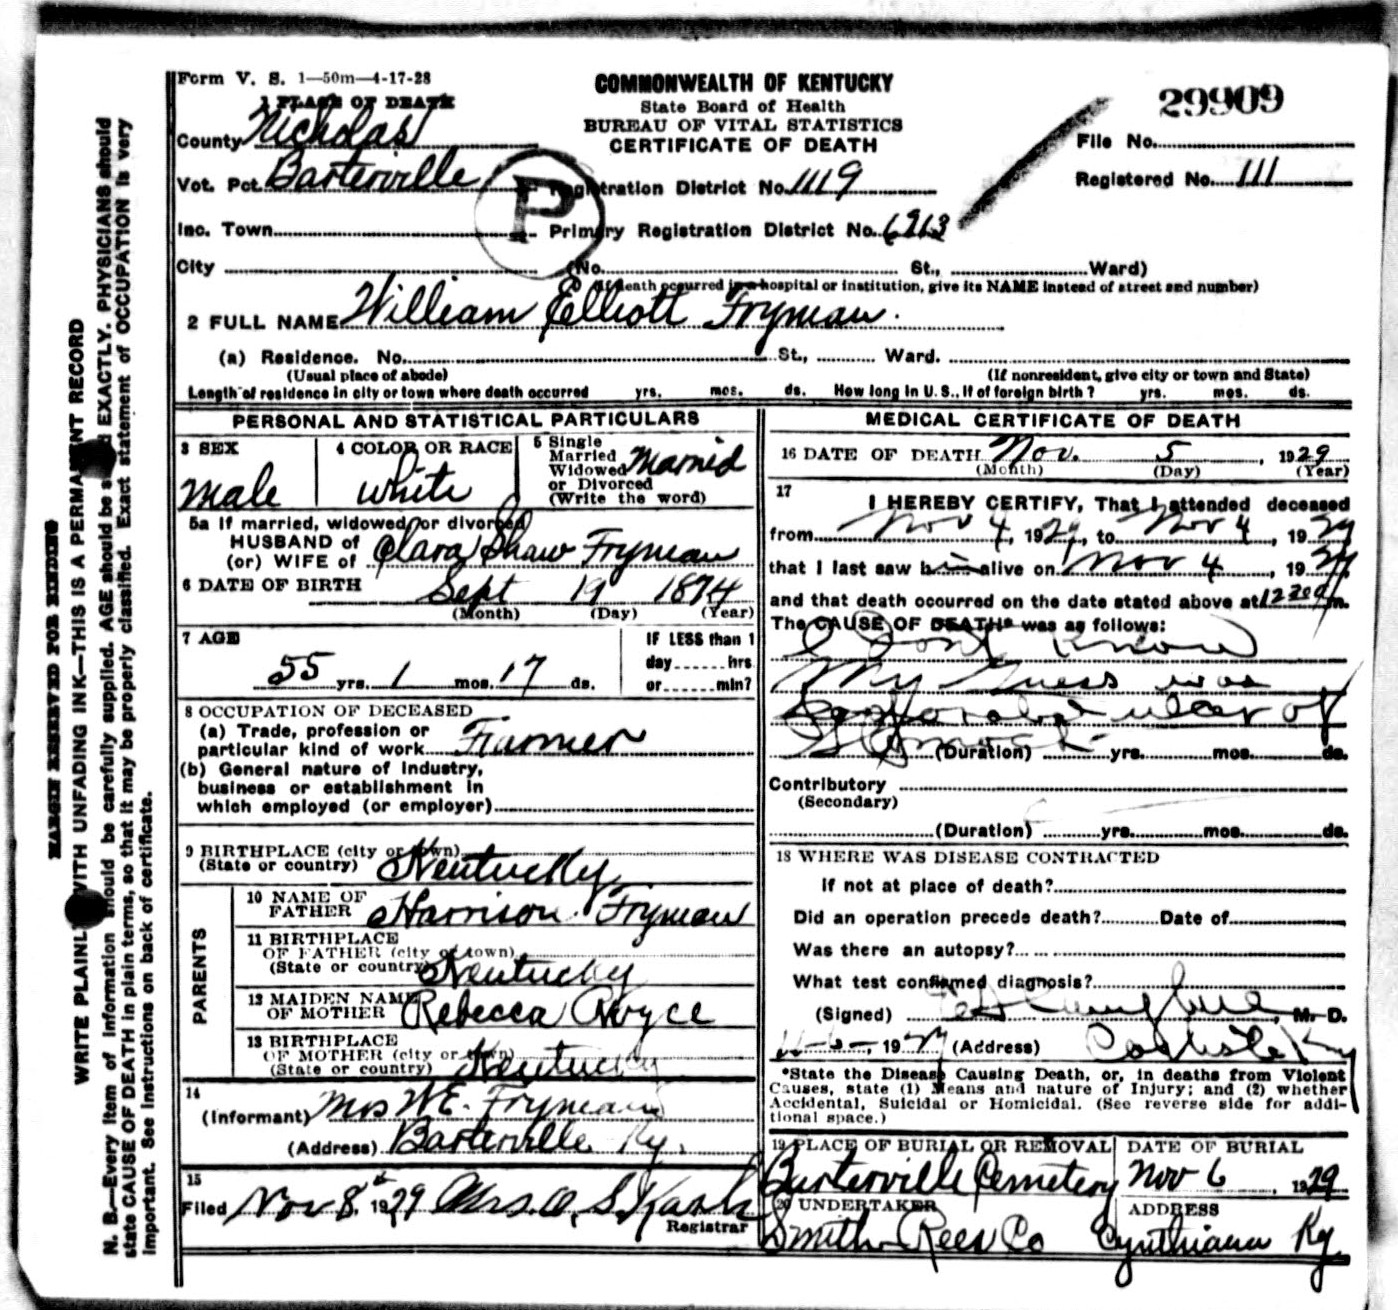 Form V. S. 1—50m—4-17-28
COMMONWEALTH OF KENTUCKY
State Board of Health
BUREAU OF VITAL STATISTICS
CERTIFICATE OF DEATH
29909
File No.
Registered No. 111
1 PLACE OF DEATH
County Nicholas
Vot. Pct. Barterville
Registration District No. 1119
P
Inc. Town
Primary Registration District No. 6913
City (No. St., Ward)
(If death occurred in a hospital or institution, give its NAME instead of street and number)
2 FULL NAME William Elliott Fryman.
(a) Residence. No. St., Ward.
(Usual place of abode) (If nonresident, give city or town and State)
Length of residence in city or town where death occurred yrs. mos. ds. How long in U. S., if of foreign birth? yrs. mos. ds.
PERSONAL AND STATISTICAL PARTICULARS
3 SEX
Male
4 COLOR OR RACE
White
5 Single
Married
Widowed
or Divorced
(Write the word)
Married
5a If married, widowed or divorced
HUSBAND of
(or) WIFE of Clara Shaw Fryman
6 DATE OF BIRTH Sept 19 1874
(Month) (Day) (Year)
7 AGE
55 yrs. 1 mos. 17 ds.
IF LESS than 1
day hrs
or min?
8 OCCUPATION OF DECEASED
(a) Trade, profession or
particular kind of work Farmer
(b) General nature of Industry,
business or establishment in
which employed (or employer)
9 BIRTHPLACE (city or town)
(State or country) Kentucky
PARENTS
10 NAME OF
FATHER Harrison Fryman
11 BIRTHPLACE
OF FATHER (city or town)
(State or country) Kentucky
12 MAIDEN NAME
OF MOTHER Rebecca Royce
13 BIRTHPLACE
OF MOTHER (city or town)
(State or country) Kentucky
14
(Informant) Mrs W.E. Fryman
(Address) Barterville Ky.
15
Filed Nov 8th 1929 Mrs. O. S. Kash
Registrar
MEDICAL CERTIFICATE OF DEATH
16 DATE OF DEATH Nov. 5, 1929
(Month) (Day) (Year)
17
I HEREBY CERTIFY, That I attended deceased
from Nov 4, 1929, to Nov 4, 1929
that I last saw him alive on Nov 4, 1929,
and that death occurred on the date stated above at 12 30 m.
The CAUSE OF DEATH* was as follows:
I Dont Know
My Guess was
ulcer of
Stomach
(Duration) yrs. mos. ds.
Contributory
(Secondary)
(Duration) yrs. mos. ds.
18 WHERE WAS DISEASE CONTRACTED
If not at place of death?
Did an operation precede death? Date of
Was there an autopsy?
What test confirmed diagnosis?
(Signed) M. D.
11-6-, 1929 (Address) Carlisle Ky
*State the Disease Causing Death, or, in deaths from Violent
Causes, state (1) Means and nature of Injury; and (2) whether
Accidental, Suicidal or Homicidal. (See reverse side for addi-
tional space.)
19 PLACE OF BURIAL OR REMOVAL
Barterville Cemetery
DATE OF BURIAL
Nov 6, 1929
20 UNDERTAKER
Smith-Rees Co
ADDRESS
Cynthiana Ky.
MARGIN RESERVED FOR BINDING
WRITE PLAINLY WITH UNFADING INK—THIS IS A PERMANENT RECORD
N. B.—Every item of information should be carefully supplied. AGE should be stated EXACTLY. PHYSICIANS should
state CAUSE OF DEATH in plain terms, so that it may be properly classified. Exact statement of OCCUPATION is very
important. See instructions on back of certificate.